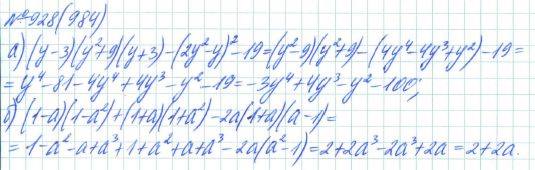 №928(984)
а) (y-3)(y²+9)(y+3)-(2y²-y)²-19=(y²-9)(y²+9)-(4y⁴-4y³+y²)-19=
=y⁴-81-4y⁴+4y³-y²-19=-3y⁴+4y³-y²-100;
б) (1-a)(1-a²)+(1+a)(1+a²)-2a(1+a)(a-1)=
=1-a²-a+a³+1+a²+a+a³-2a(a²-1)=2+2a³-2a³+2a=2+2a.